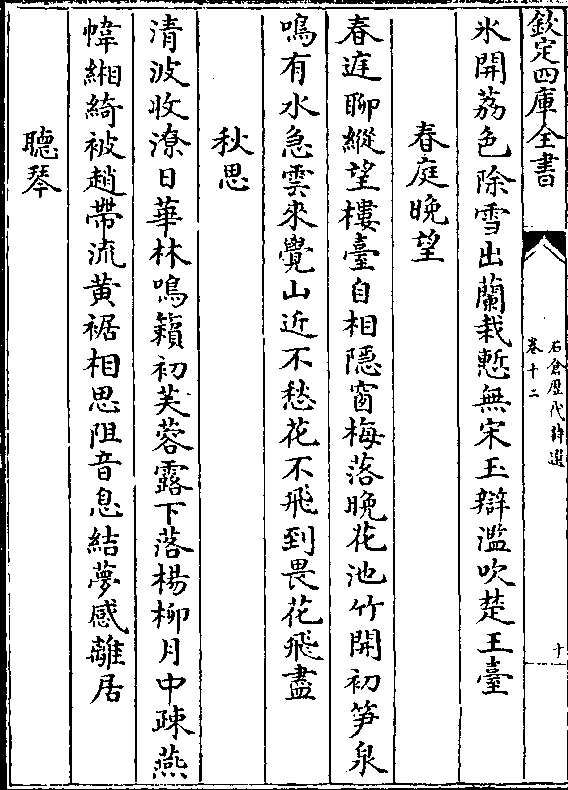 欽定四庫全書
石倉歷代詩選
卷十二
十
氷開荔色除雪出蘭栽慙無宋玉辯濫吹楚王臺
春庭晚望
春庭聊縱望樓臺自相隱窗梅落晚花池竹開初笋泉
鳴有水急雲來覺山近不愁花不飛到畏花飛盡
秋思
清波收潦日華林鳴籟初芙蓉露下落楊柳月中疎燕
幃緗綺被趙帶流黃裾相思阻音息結夢感離居
聽琴